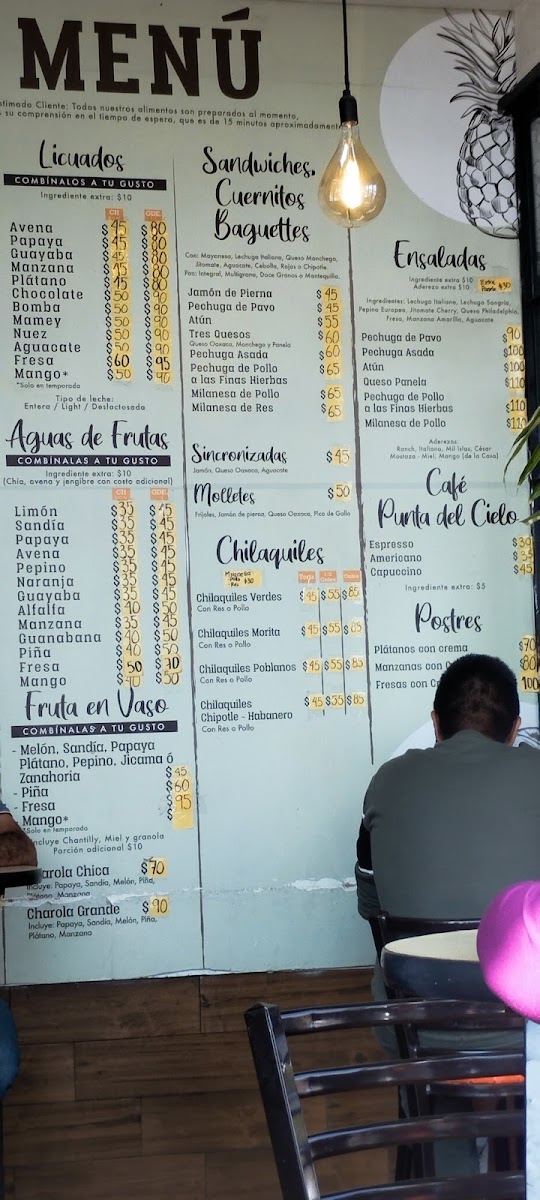 MENÚ
stimado Cliente: Todos nuestros alimentos son preparados al momento,
su comprensión en el tiempo de espera, que es de 15 minutos aproximadamente
Licuados
COMBÍNALOS A TU GUSTO
Ingrediente extra: $10
CH GDE
Avena $45 $80
Papaya $45 $80
Guayaba $45 $80
Manzana $45 $80
Plátano $45 $80
Chocolate $50 $90
Bomba $50 $90
Mamey $50 $90
Nuez $50 $90
Aguacate $50 $90
Fresa $60 $95
Mango* $50 $90
*Solo en temporada
Tipo de leche:
Entera / Light / Deslactosada
Aguas de Frutas
COMBÍNALAS A TU GUSTO
Ingrediente extra: $10
(Chía, avena y jengibre con costo adicional)
CH GDE
Limón $35 $45
Sandía $35 $45
Papaya $35 $45
Avena $35 $45
Pepino $35 $45
Naranja $35 $45
Guayaba $35 $45
Alfalfa $40 $50
Manzana $35 $45
Guanabana $40 $50
Piña $40 $50
Fresa $50 $70
Mango $40 $50
Fruta en Vaso
COMBÍNALAS A TU GUSTO
- Melón, Sandía, Papaya
Plátano, Pepino, Jicama ó
Zanahoria $45
- Piña $60
- Fresa $95
- Mango* $
*Solo en temporada
Incluye Chantilly, Miel y granola
Porción adicional $10
Charola Chica $70
Incluye: Papaya, Sandía, Melón, Piña,
Plátano, Manzana
Charola Grande $90
Incluye: Papaya, Sandía, Melón, Piña,
Plátano, Manzana
Sandwiches,
Cuernitos
Baguettes
Con: Mayonesa, Lechuga Italiana, Queso Manchego,
Jitomate, Aguacate, Cebolla, Rajas o Chipotle.
Pan: Integral, Multigrano, Doce Granos o Mantequilla.
Jamón de Pierna $45
Pechuga de Pavo $45
Atún $55
Tres Quesos $60
Queso Oaxaca, Manchego y Panela
Pechuga Asada $60
Pechuga de Pollo $65
a las Finas Hierbas
Milanesa de Pollo $65
Milanesa de Res $65
Sincronizadas $45
Jamón, Queso Oaxaca, Aguacate
Molletes $50
Frijoles, Jamón de pierna, Queso Oaxaca, Pico de Gallo
Chilaquiles
$30
Chilaquiles Verdes $45 $55 $85
Con Res o Pollo
Chilaquiles Morita $45 $55 $85
Con Res o Pollo
Chilaquiles Poblanos $45 $55 $85
Con Res o Pollo
Chilaquiles $45 $55 $85
Chipotle - Habanero
Con Res o Pollo
Ensaladas
Ingrediente extra $10
Aderezo extra $10
$30
Ingredientes: Lechuga Italiana, Lechuga Sangría,
Pepino Europeo, Jitomate Cherry, Queso Philadelphia,
Fresa, Manzana Amarilla, Aguacate
Pechuga de Pavo $90
Pechuga Asada $100
Atún $100
Queso Panela $110
Pechuga de Pollo
a las Finas Hierbas $110
Milanesa de Pollo $110
Aderezos:
Ranch, Italiano, Mil Islas, César
Mostaza - Miel, Mango (de la Casa)
Café
Punta del Cielo
Espresso $30
Americano $35
Capuccino $45
Ingrediente extra: $5
Postres
Plátanos con crema $70
Manzanas con $80
Fresas con 100